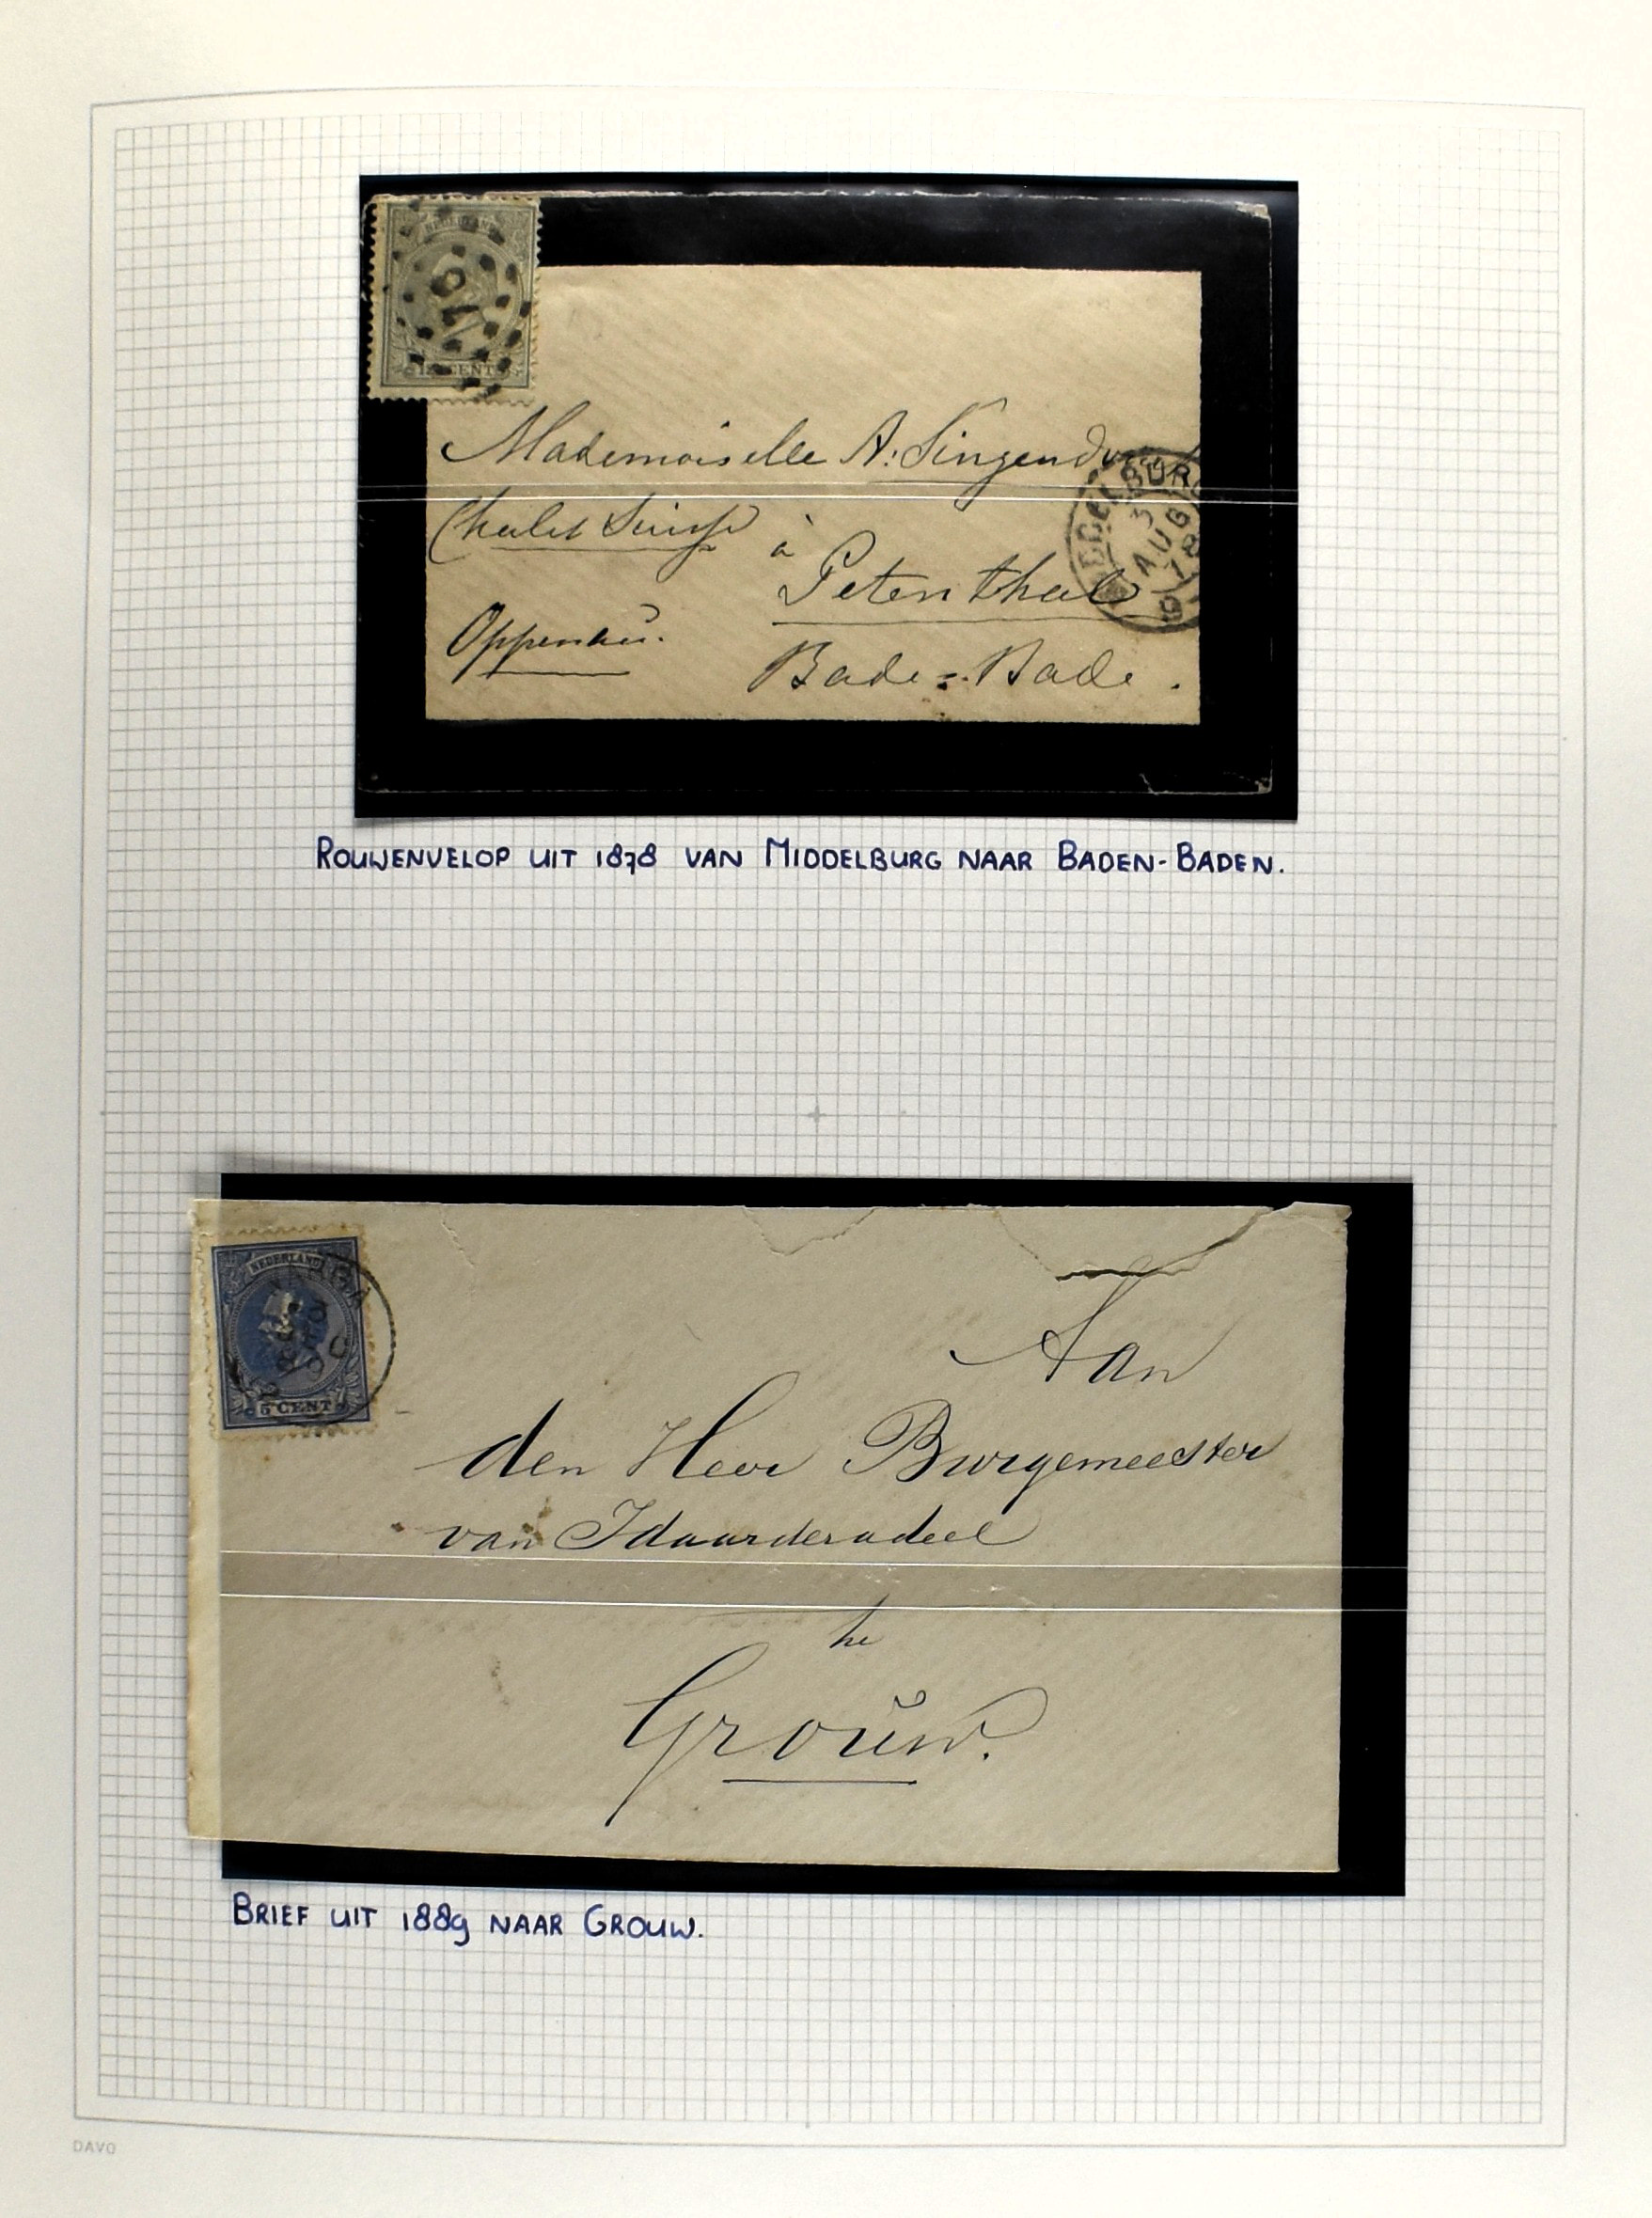 NEDERLAND
91
12½ CENT
Mademoiselle A. Singendonck
MIDDELBURG
3 AUG 78
Chalet Suisse
à
Petersthal
Oppenau.
Bade-Bade.
ROUWENVELOP UIT 1878 VAN MIDDELBURG NAAR BADEN-BADEN.
NEDERLAND
5 CENT
Aan
den Heer Burgemeester
van Idaarderadeel
te
Grouw.
BRIEF UIT 1889 NAAR GROUW.
DAVO